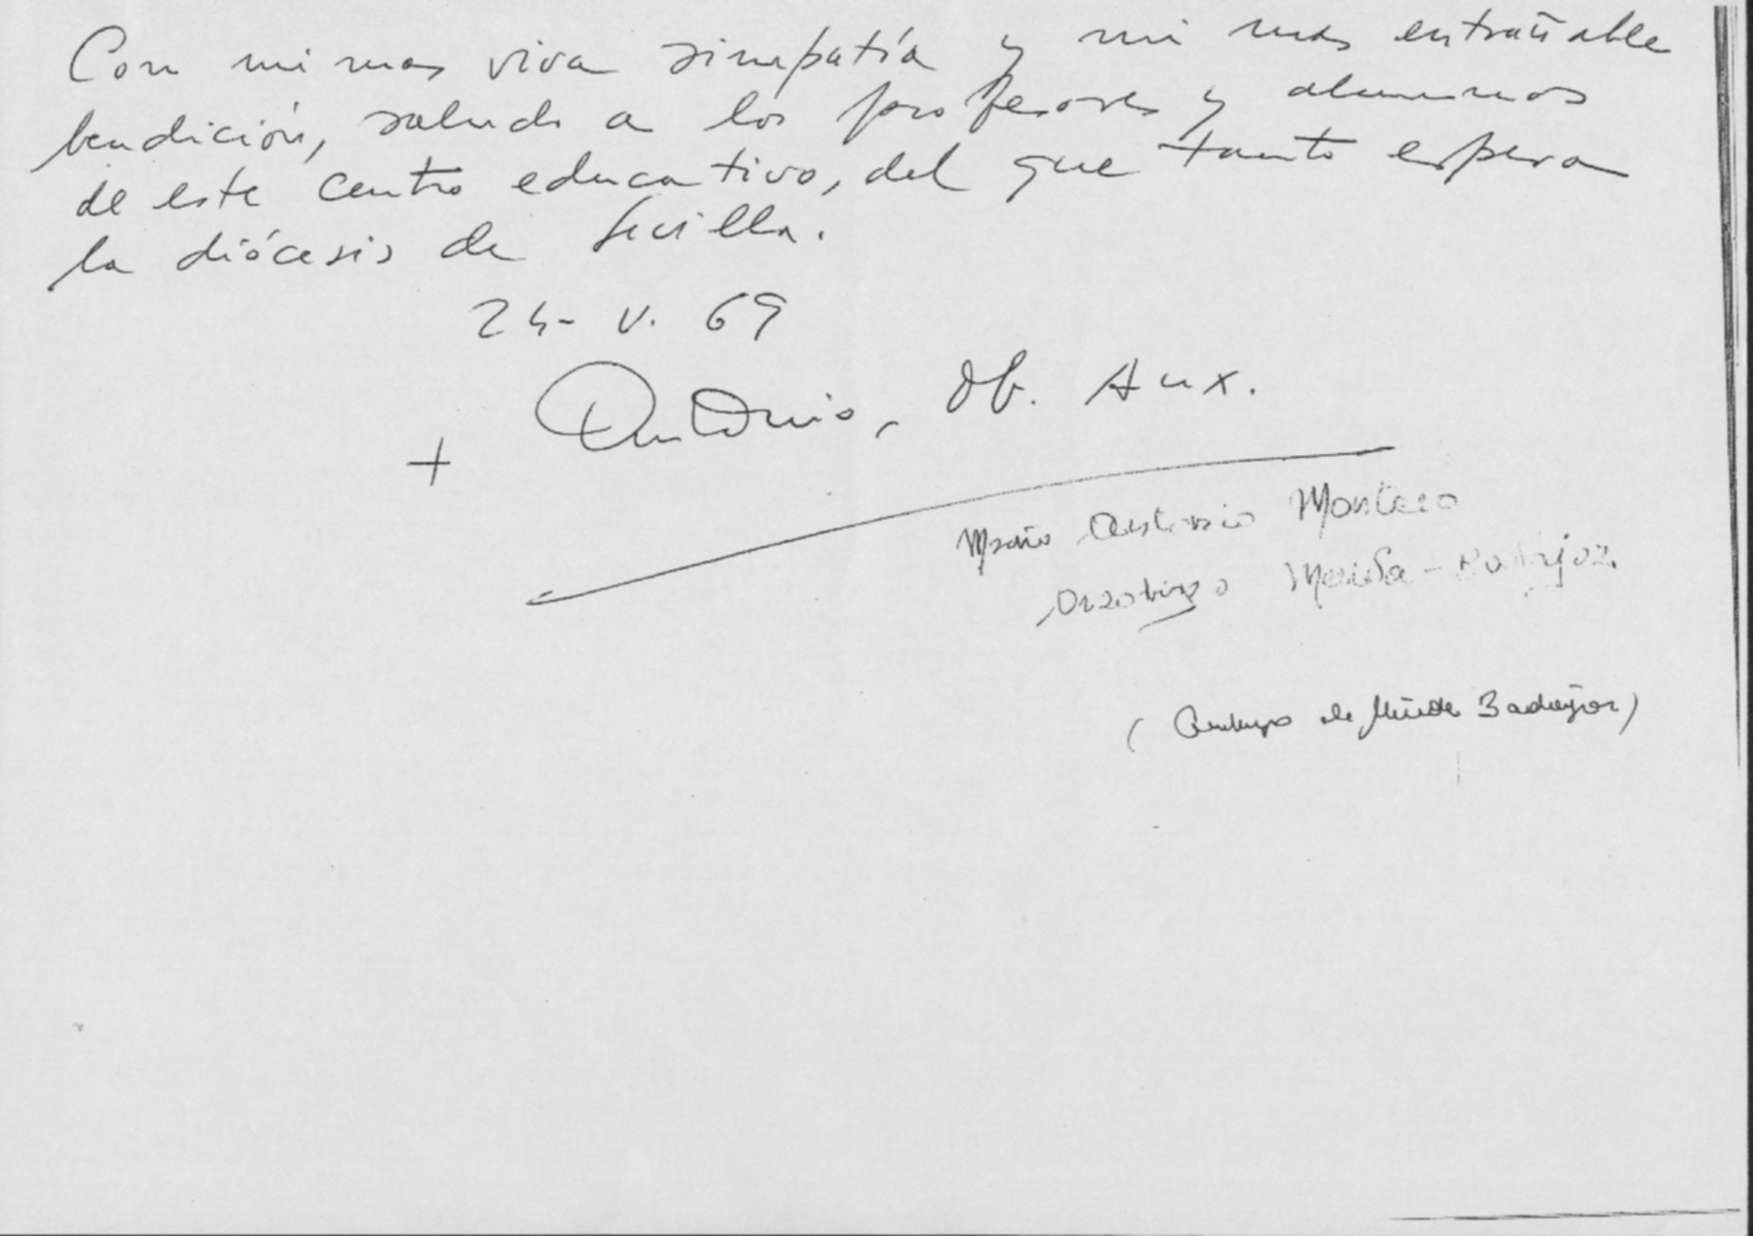 Con mi mas viva simpatía y mi mas entrañable
bendición, saludo a los profesores y alumnos
de este centro educativo, del que tanto espera
la diócesis de Sevilla.
24- V. 69
+ Antonio, Ob. Aux.
Antonio Montero
Arzobispo Merida - Badajoz
(Arzobispo de Mérida Badajoz)